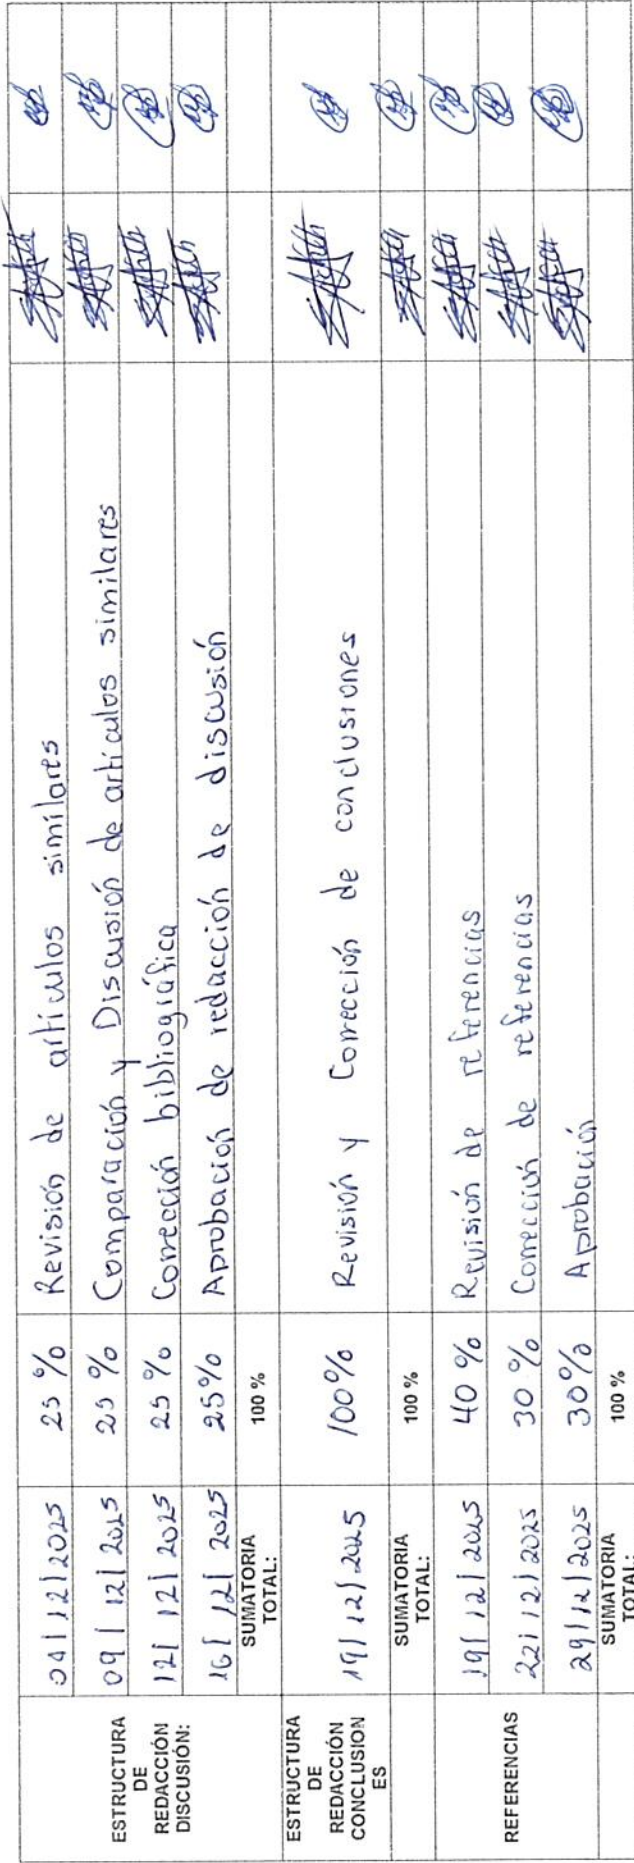 ESTRUCTURA
DE
REDACCIÓN
DISCUSIÓN:
04/12/2025 25 % Revisión de artículos similares
09/12/2025 25 % Comparación y Discusión de artículos similares
12/12/2025 25 % Corrección bibliográfica
16/12/2025 25% Aprobación de redacción de discusión
SUMATORIA
TOTAL:
100 %
ESTRUCTURA
DE
REDACCIÓN
CONCLUSION
ES
19/12/2025 100% Revisión y Corrección de conclusiones
SUMATORIA
TOTAL:
100 %
REFERENCIAS
19/12/2025 40 % Revisión de referencias
22/12/2025 30 % Corrección de referencias
29/12/2025 30% Aprobación
SUMATORIA
TOTAL:
100 %